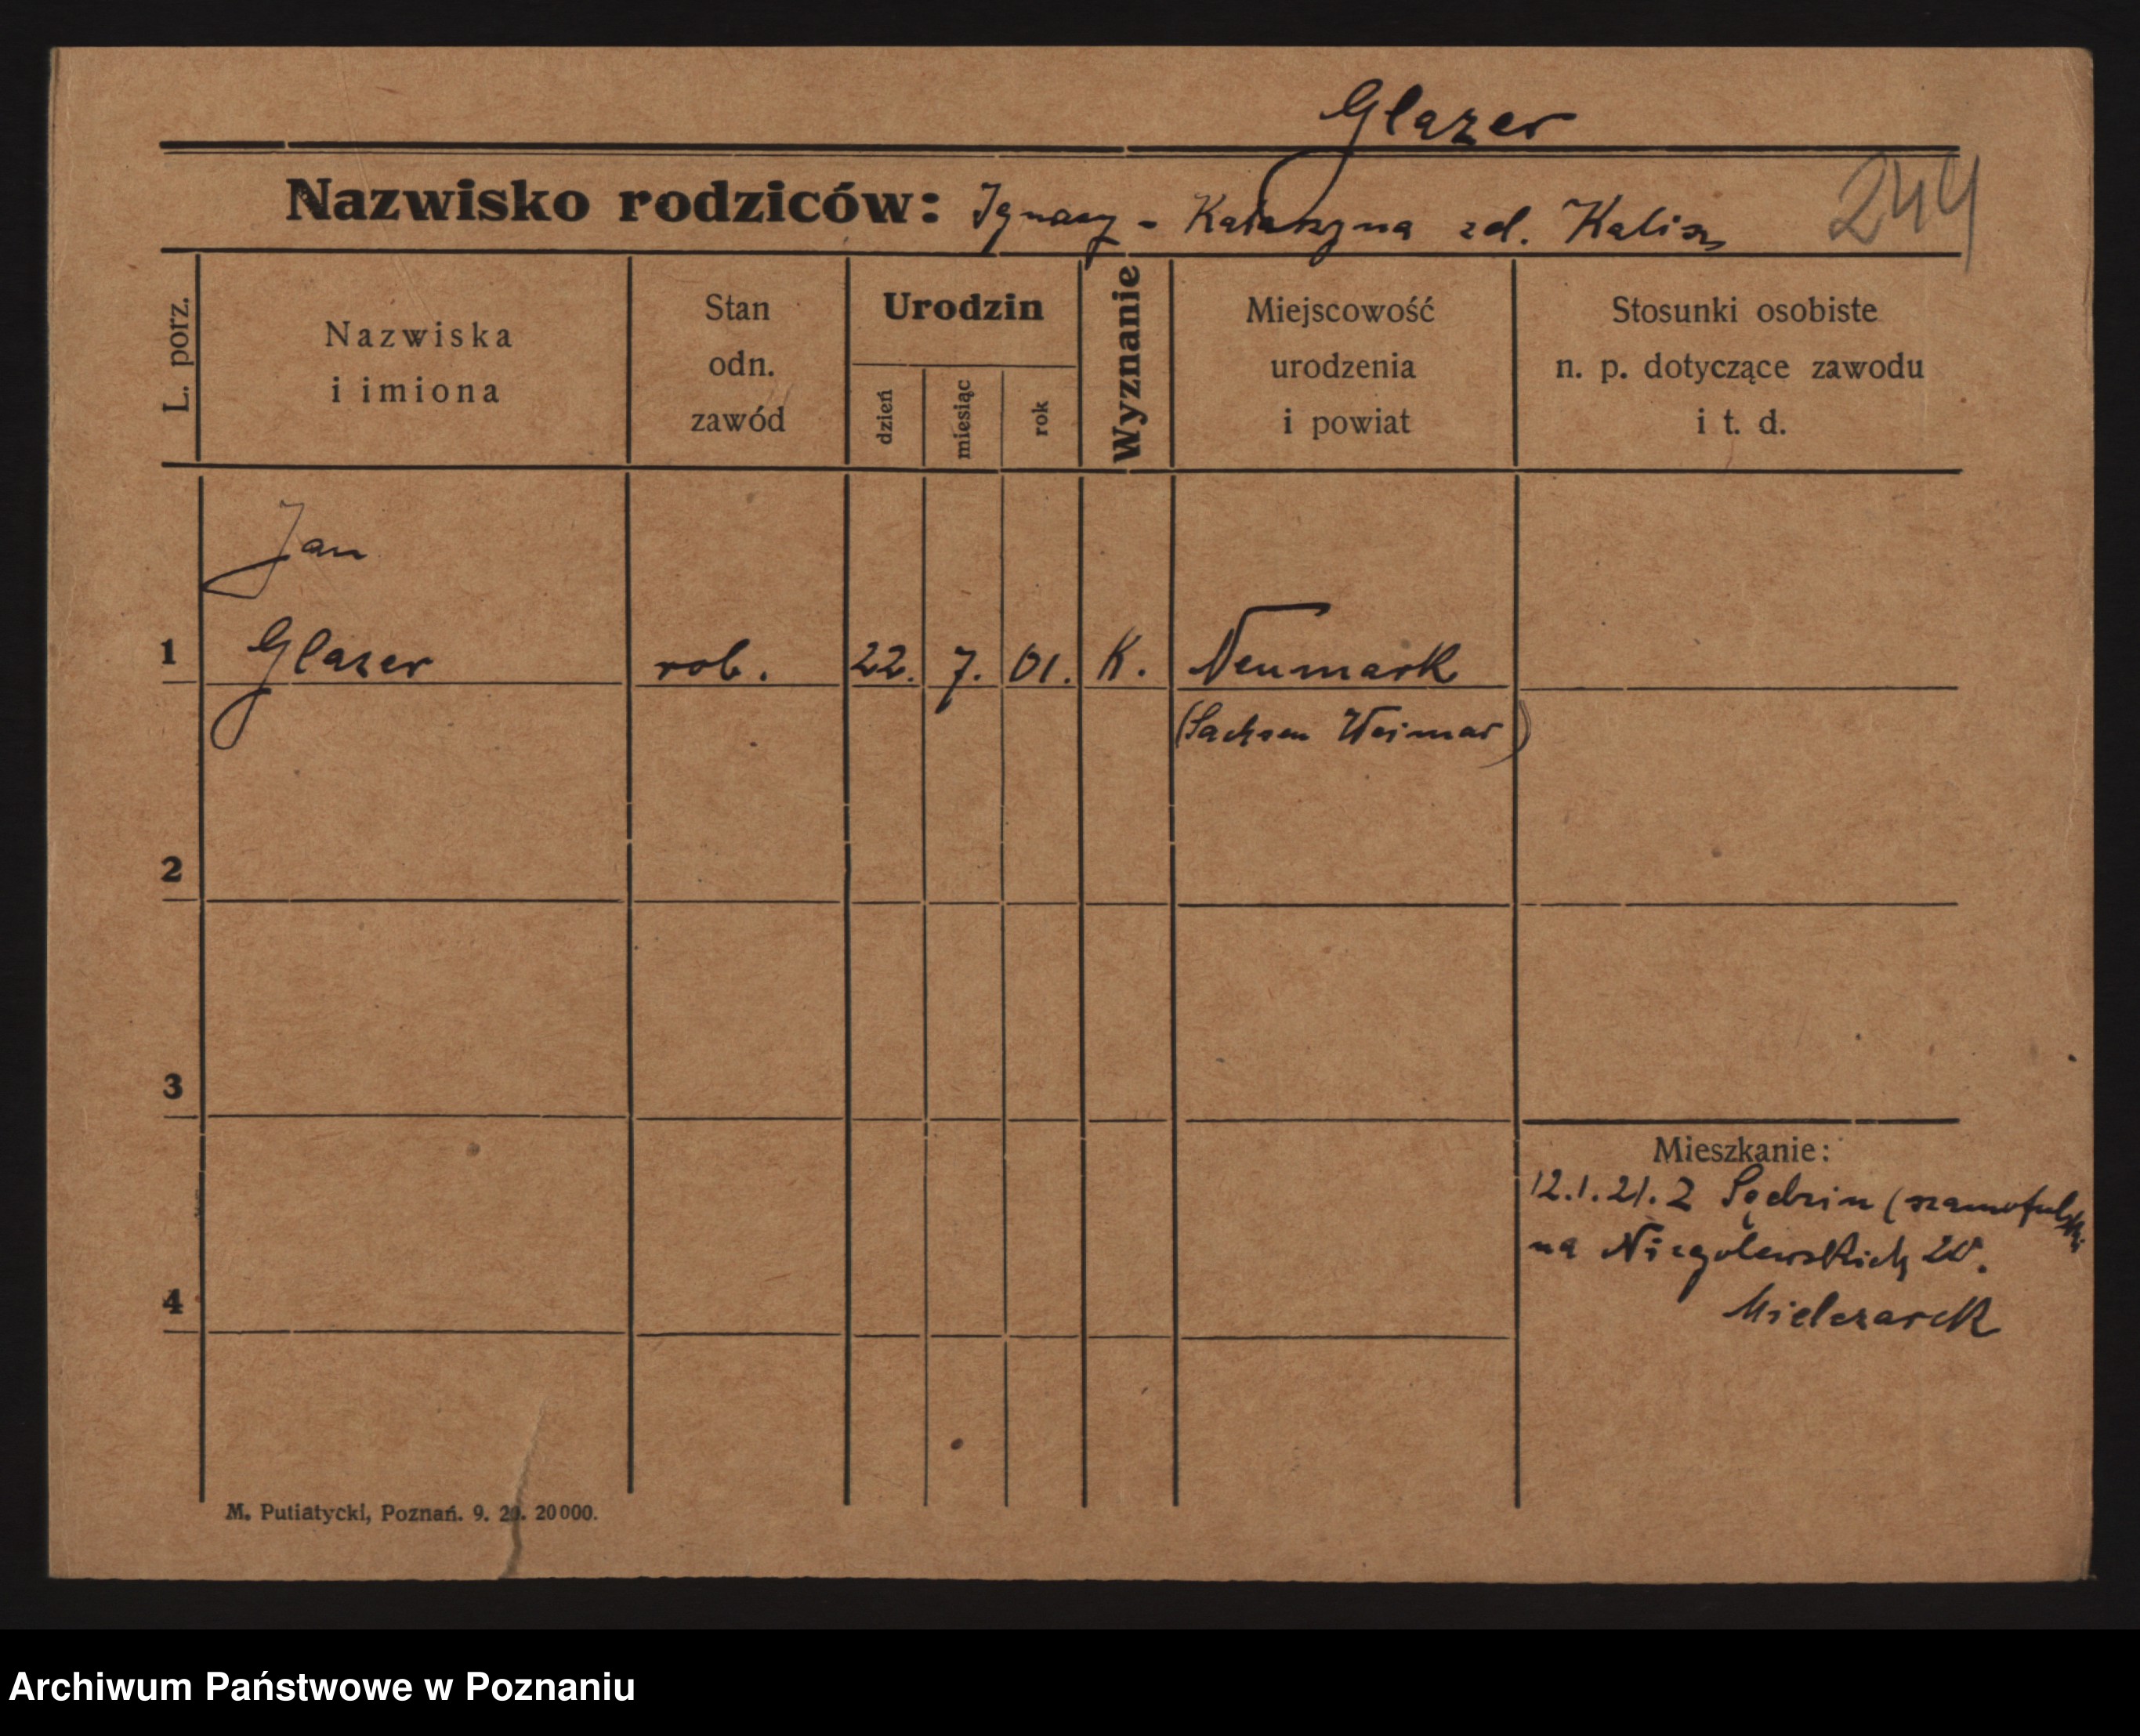 Glazer
Nazwisko rodziców: Ignacy - Katarzyna zd. Kalisz
244
L. porz.
Nazwiska
i imiona
Stan
odn.
zawód
Urodzin
dzień
miesiąc
rok
Wyznanie
Miejscowość
urodzenia
i powiat
Stosunki osobiste
n. p. dotyczące zawodu
i t. d.
Jan
1 Glazer rob. 22. 7. 01. K. Neumark
(Sachsen Weimar)
2
3
Mieszkanie:
12.1.21. Z Sędzin (szamotulski
na Niegolewskich 20.
4
Mielczarek
M. Putiatycki, Poznań. 9. 20. 20000.
Archiwum Państwowe w Poznaniu